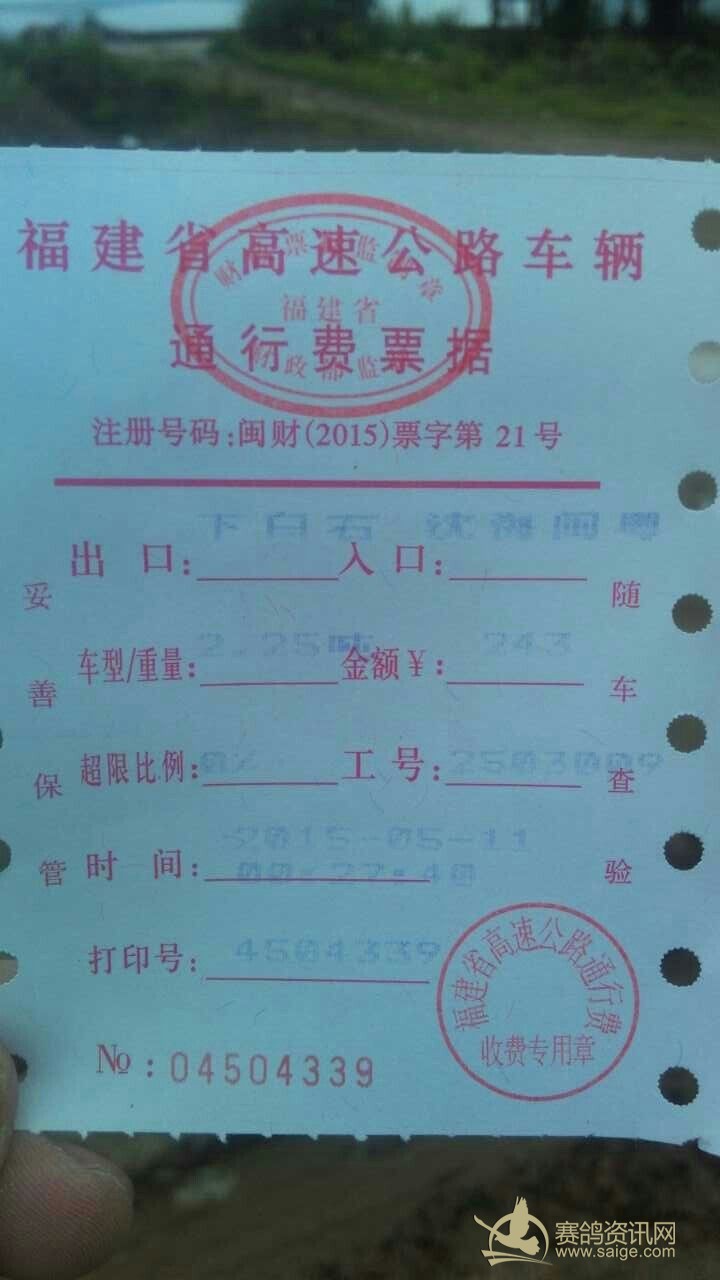 福建省高速公路车辆
通行费票据
福建省
注册号码:闽财(2015)票字第 21号
下白石 沈海闽粤
出 口: 入 口:
2.25吨 243
车型/重量: 金额¥:
超限比例:0% 工 号:2503009
2015-05-11
时 间:00:27:40
打印号:4504339
妥善保管
随车查验
福建省高速公路通行费
收费专用章
№:04504339
赛鸽资讯网
www.saige.com